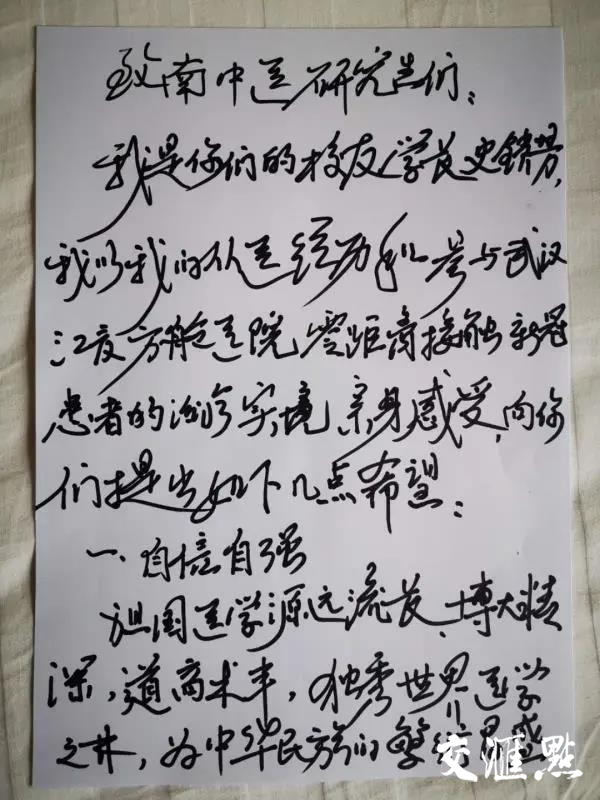 致南中医研究生们：
我是你们的校友学长史锁芳，
我以我的从医经历和参与武汉
江夏方舱医院零距离接触新冠
患者的诊疗实境亲身感受，向你
们提出如下几点希望：
一、自信自强
祖国医学源远流长、博大精
深，道高术丰，独秀世界医学
之林，为中华民族的繁衍昌盛
交汇點